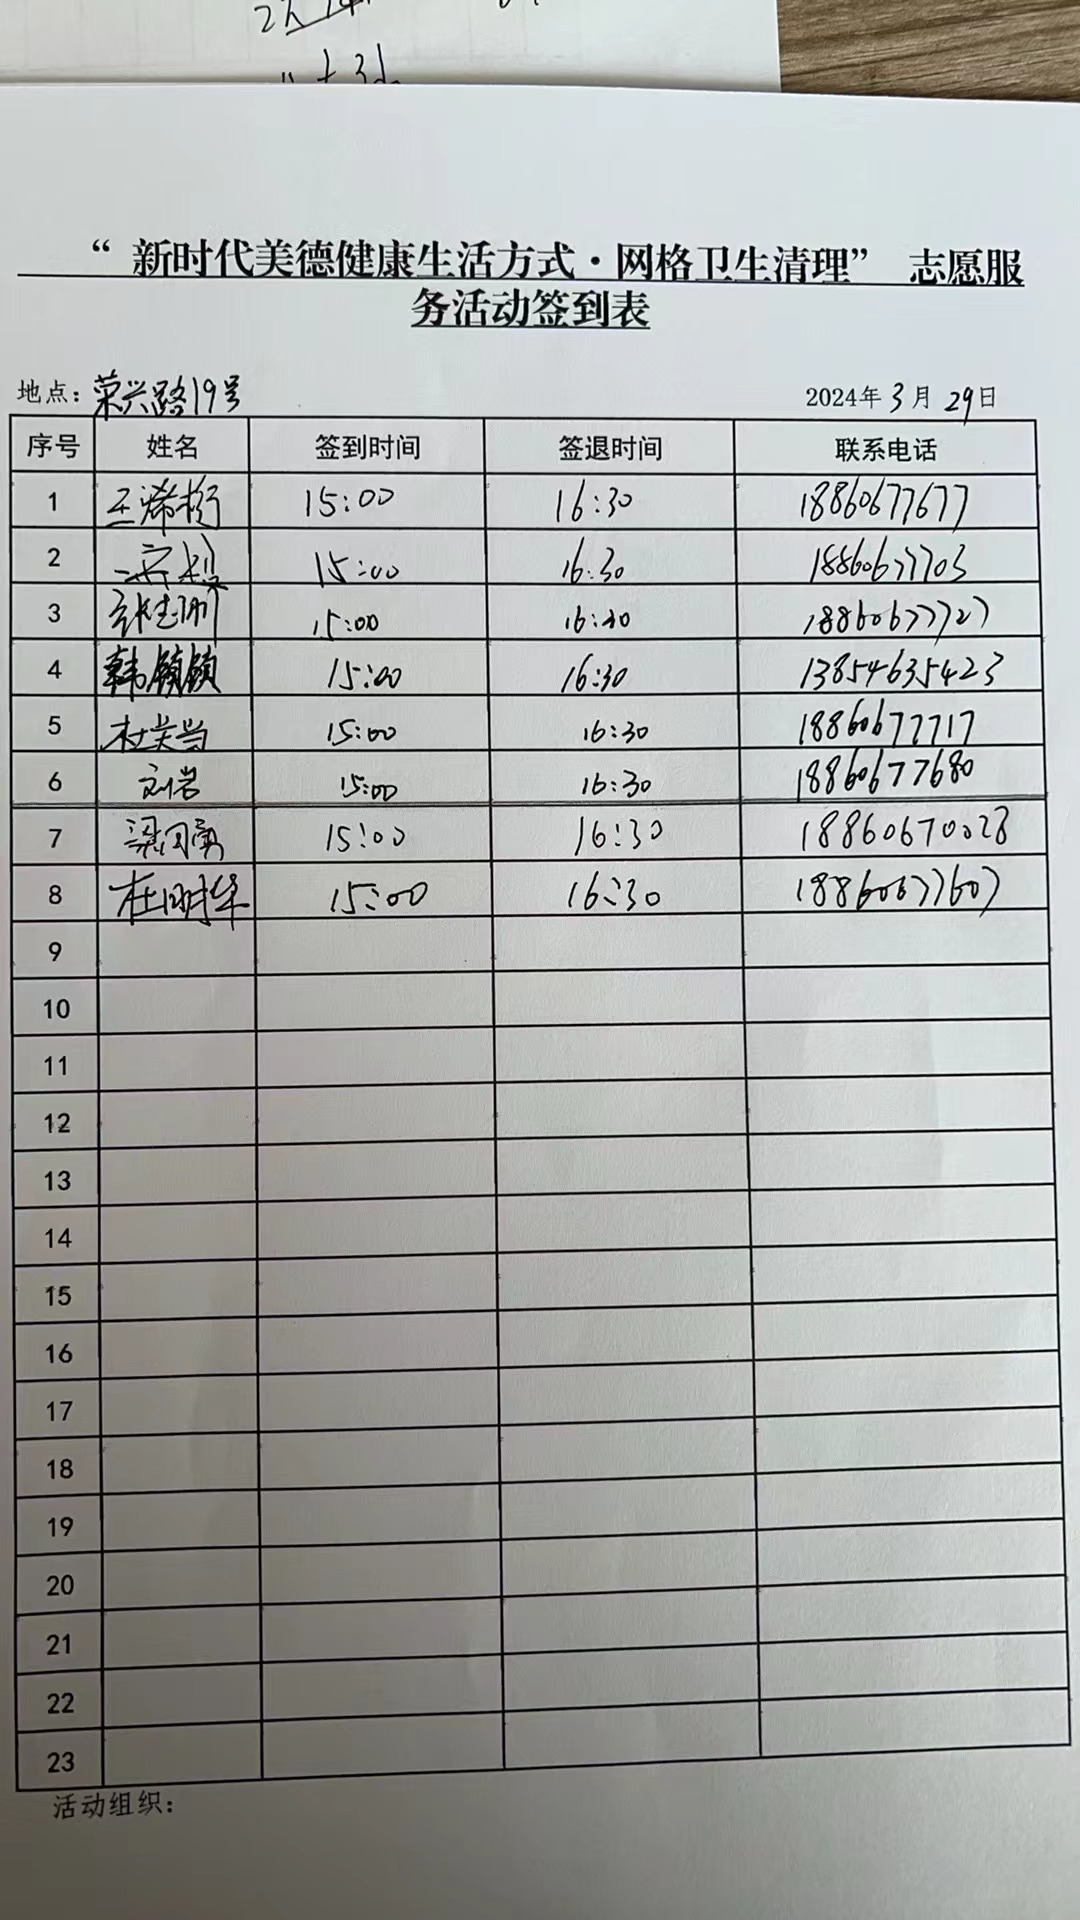 “ 新时代美德健康生活方式·网格卫生清理” 志愿服
务活动签到表
地点：荣兴路19号 2024年 3 月 29 日
序号 姓名 签到时间 签退时间 联系电话
1 15:00 16:30 18860677677
2 15:00 16:30 18860677703
3 15:00 16:30 18860677727
4 韩镇镇 15:00 16:30 13854635423
5 杜关兴 15:00 16:30 18860677717
6 刘岩 15:00 16:30 18860677680
7 梁同勇 15:00 16:30 18860670028
8 杜明华 15:00 16:30 18860677607
9
10
11
12
13
14
15
16
17
18
19
20
21
22
23
活动组织：